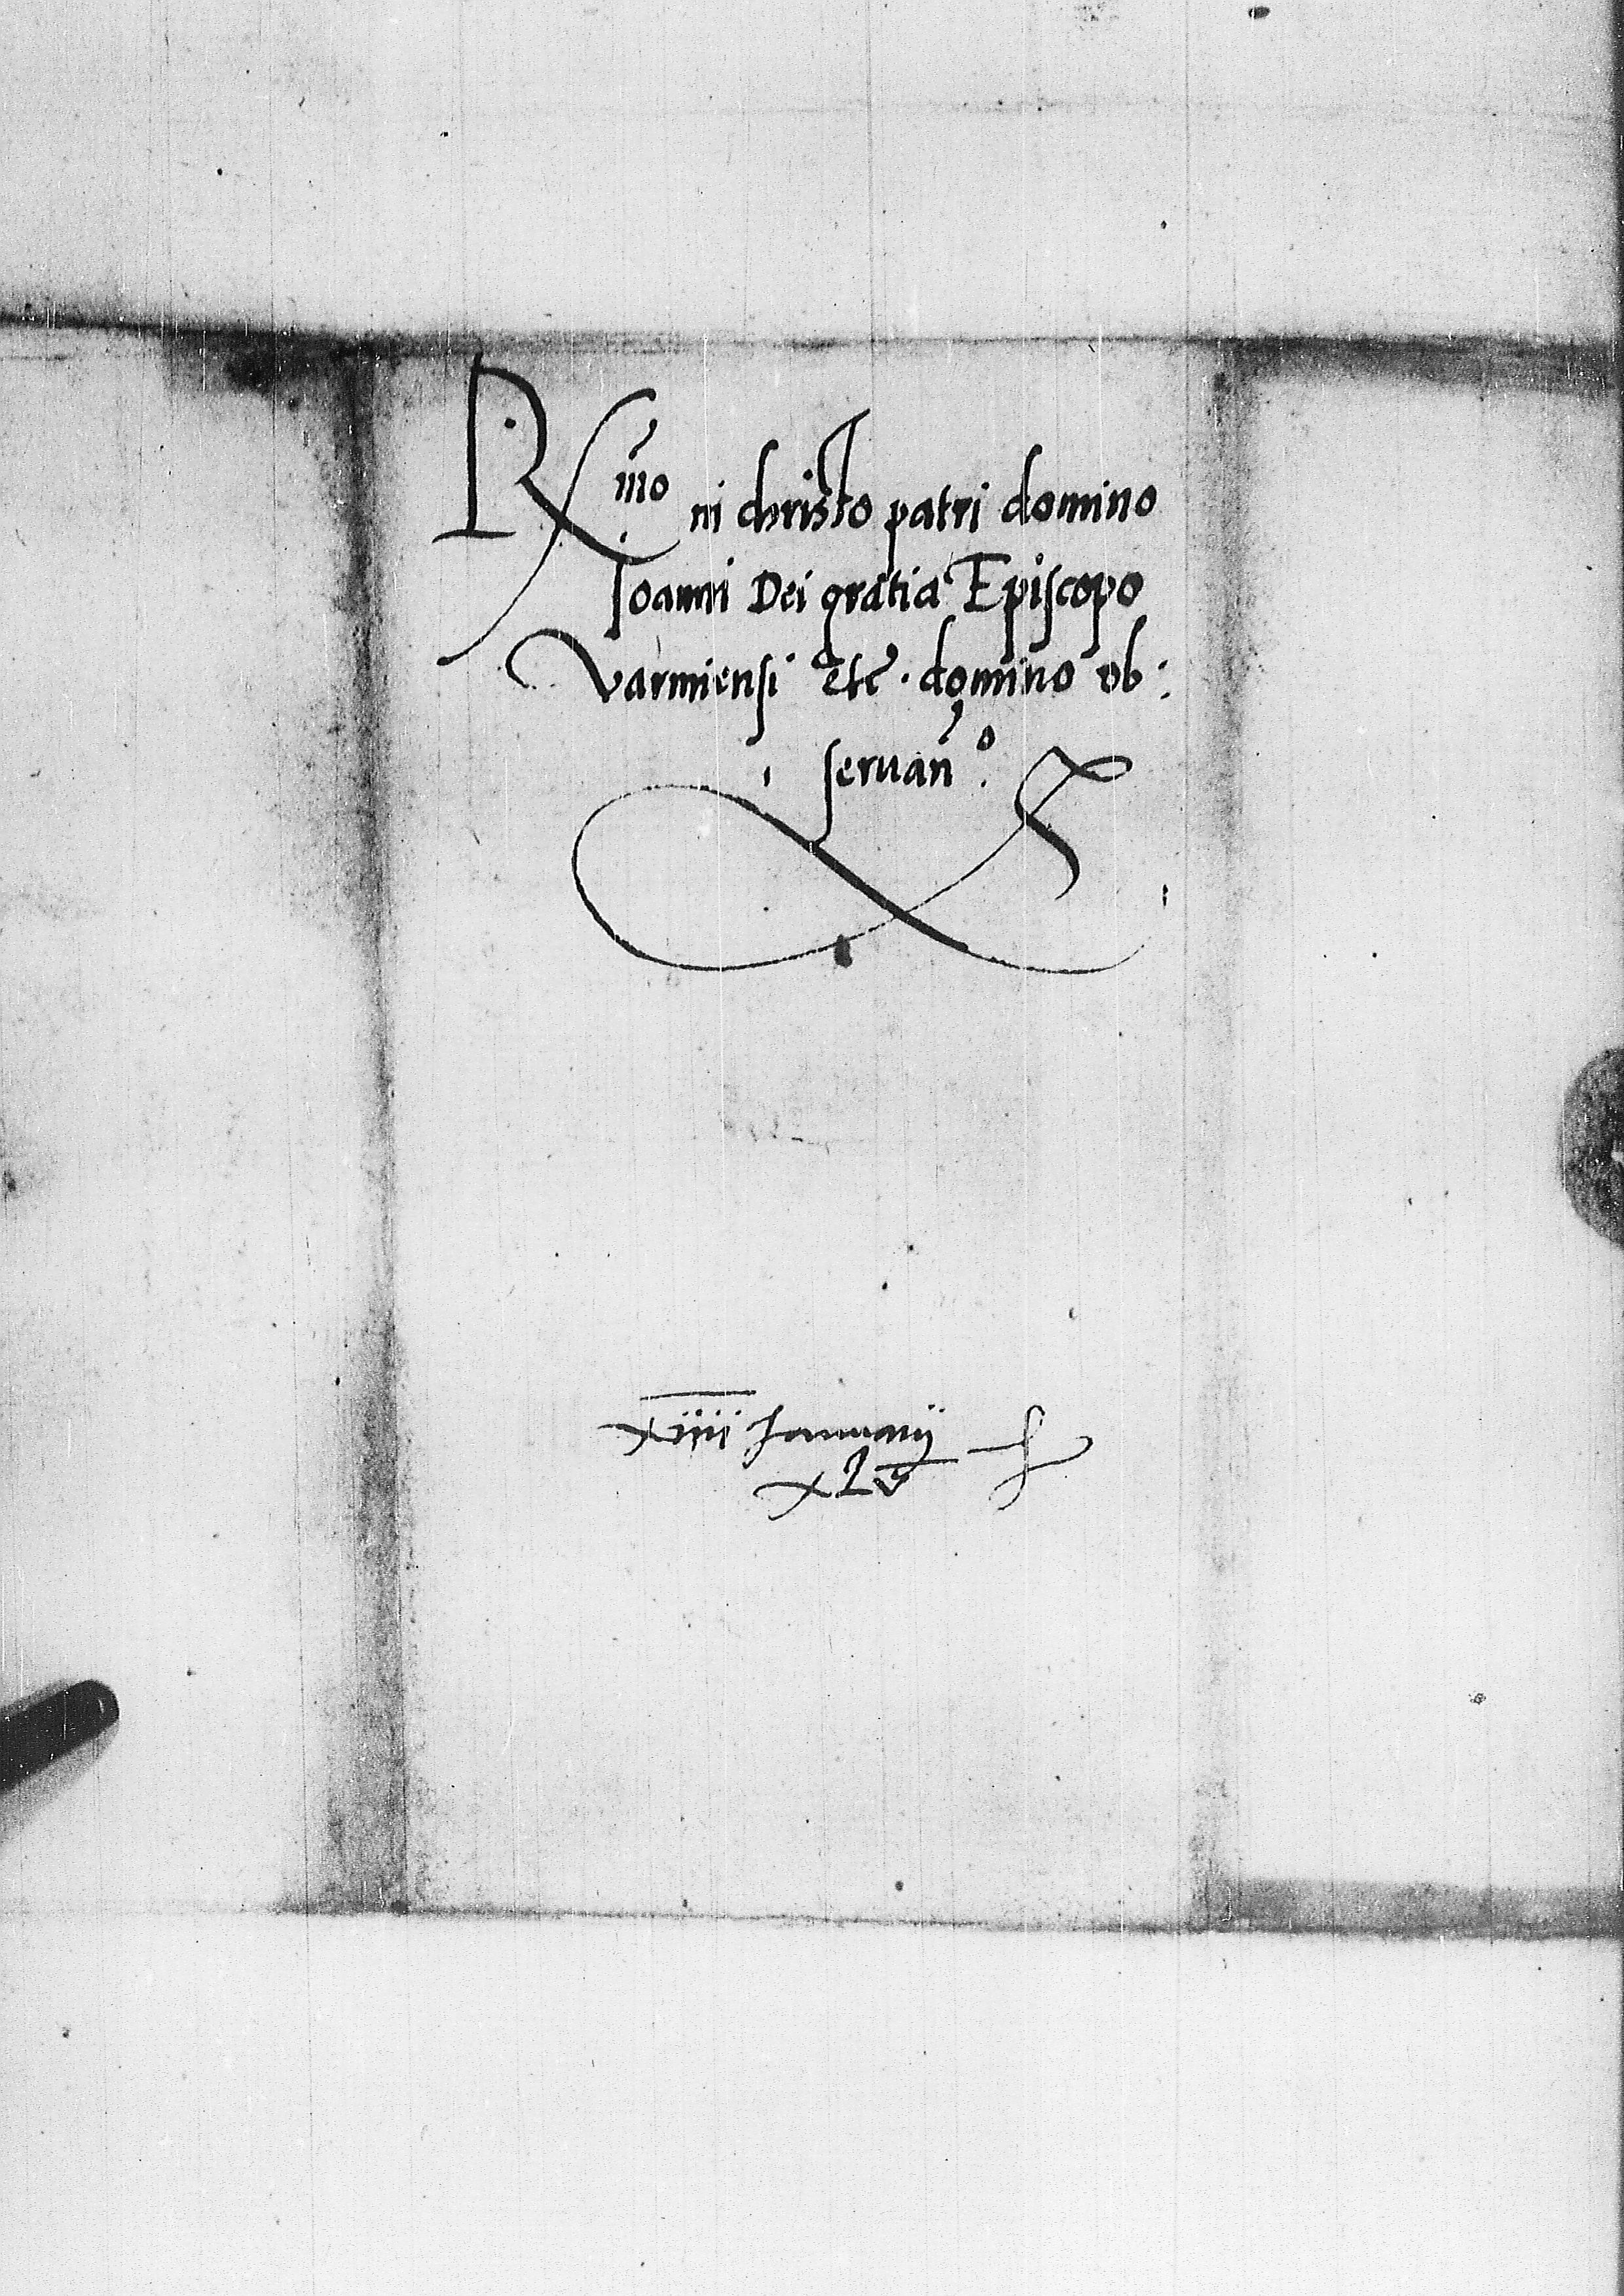 R mo in christo patri domino
Ioanni Dei gratia Episcopo
Varmiensi etc. domino ob:
servan o.
xiiii Januarij
xLv